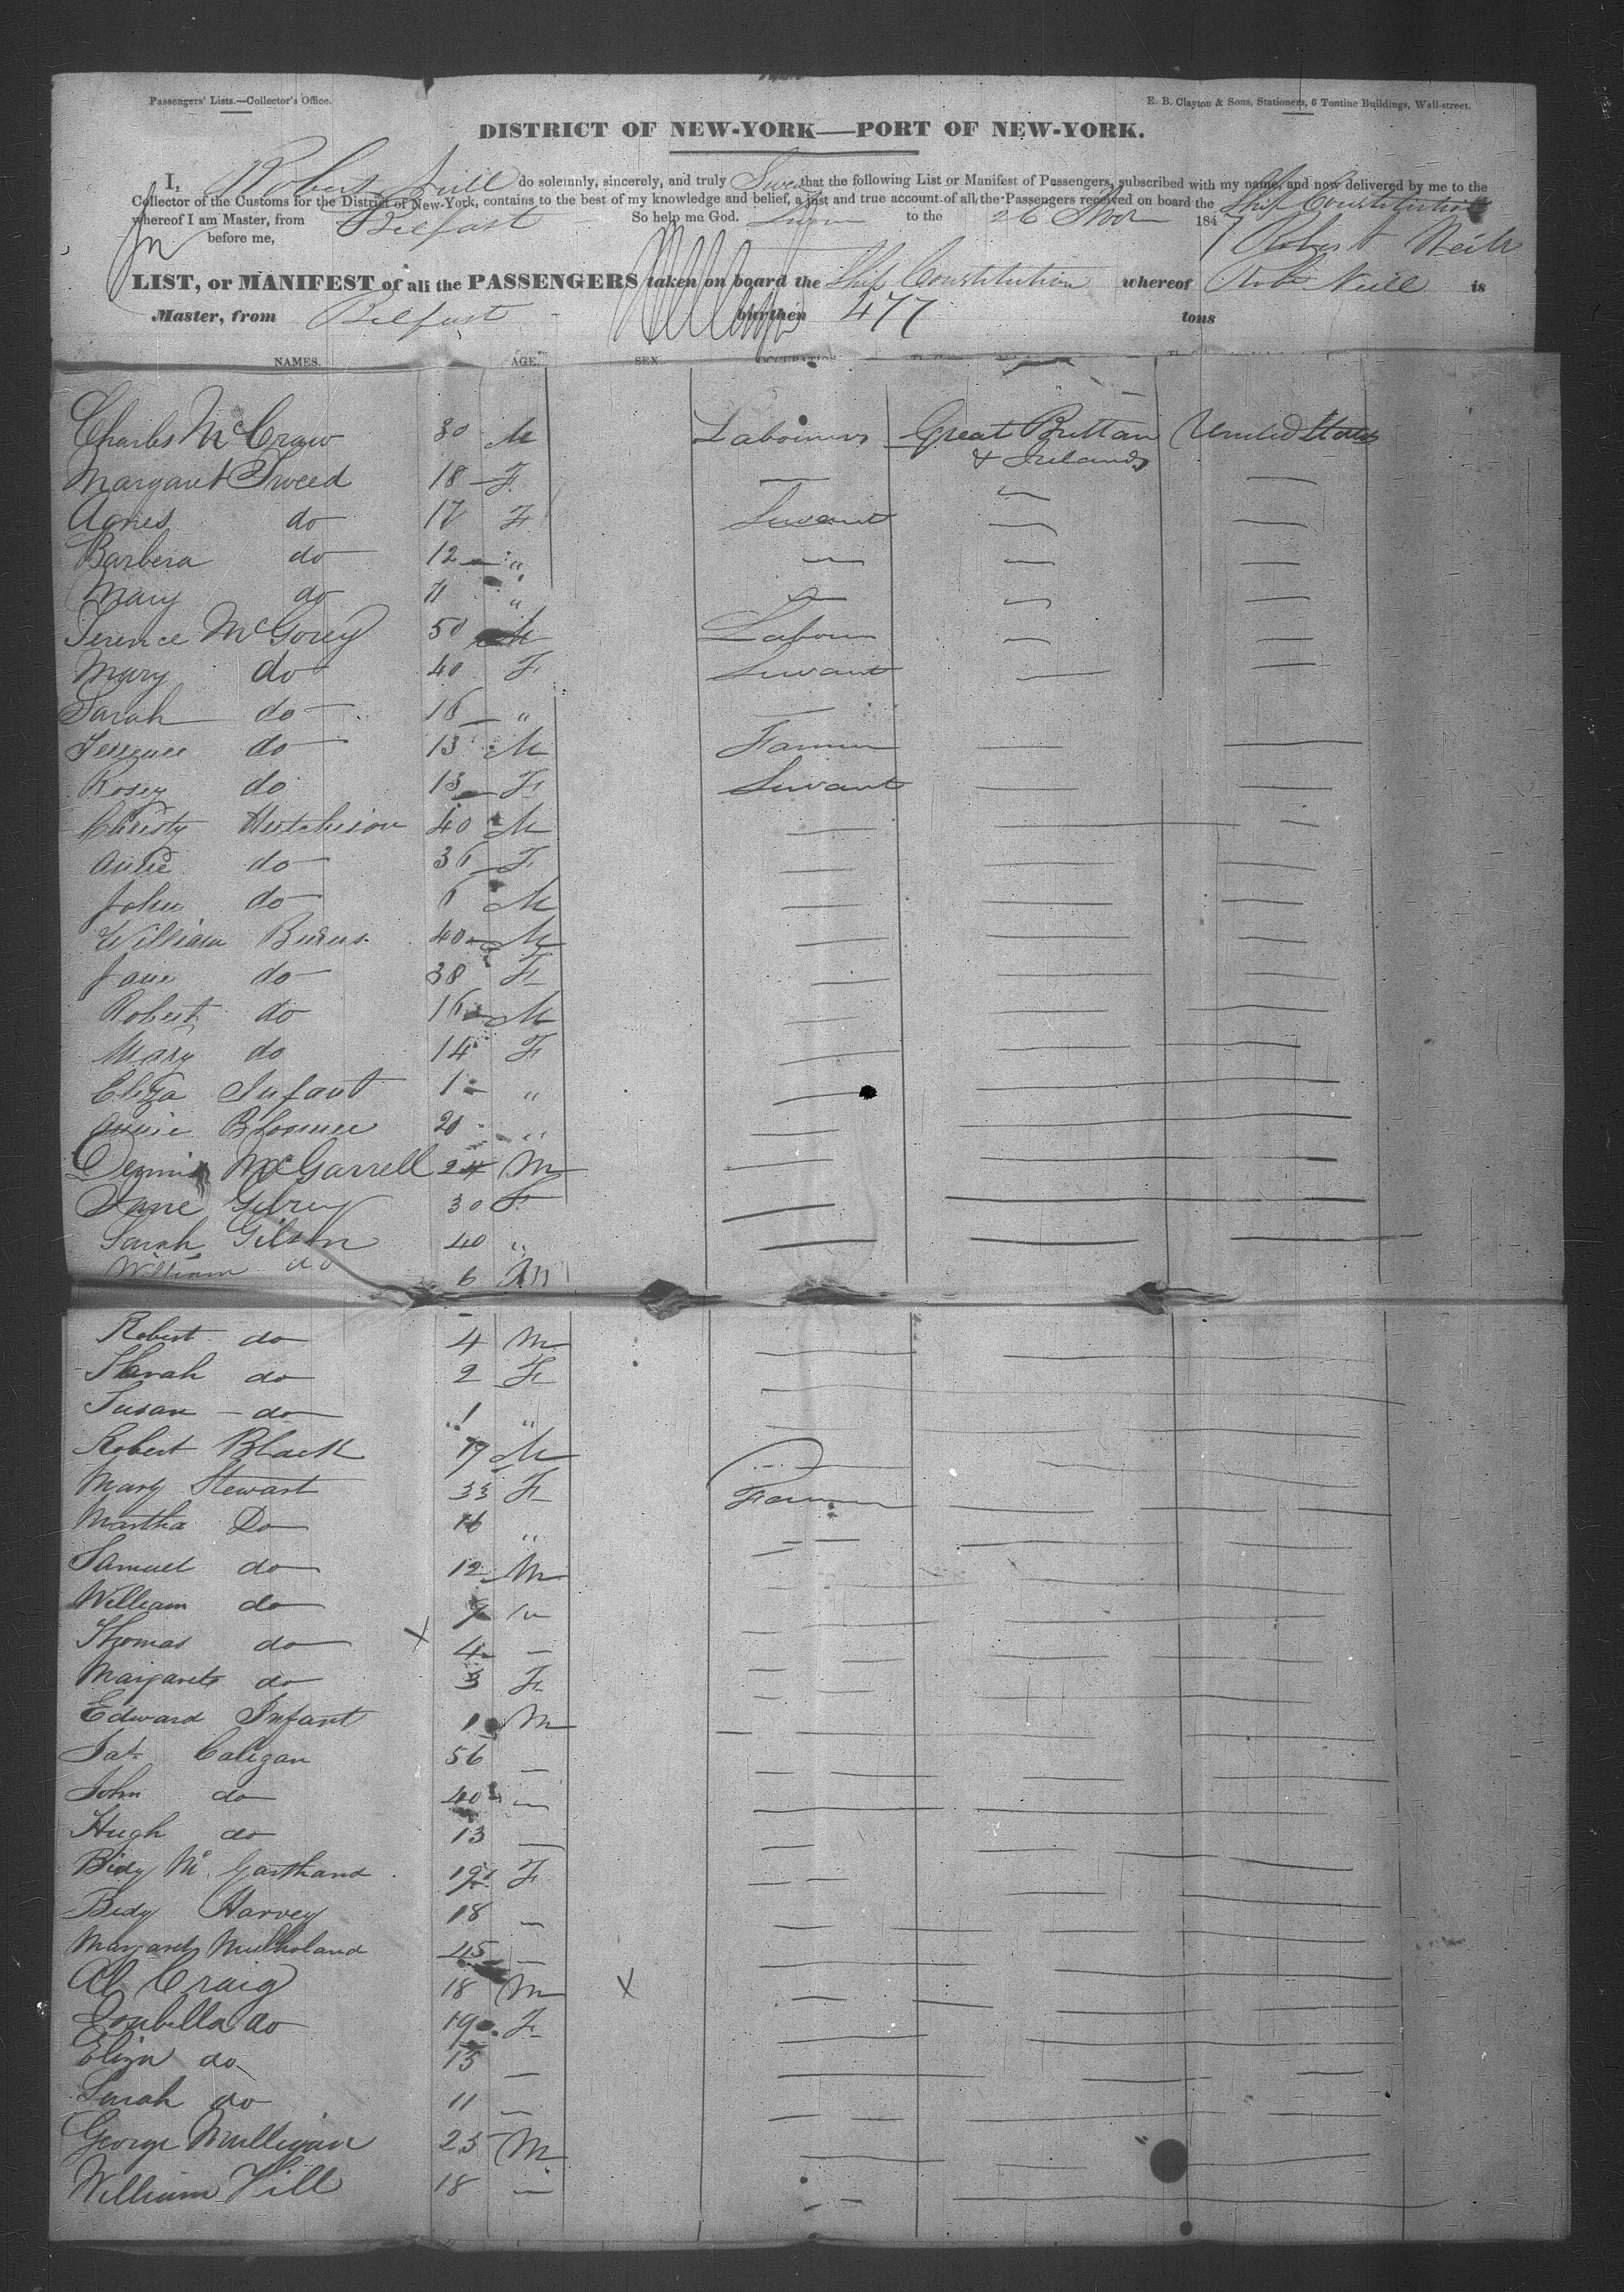 Passengers' Lists.—Collector's Office.
E. B. Clayton & Sons, Stationers, 6 Tontine Buildings, Wall-street.
DISTRICT OF NEW-YORK—PORT OF NEW-YORK.
I, Robert Neill do solemnly, sincerely, and truly Swear that the following List or Manifest of Passengers, subscribed with my name, and now delivered by me to the
Collector of the Customs for the District of New-York, contains to the best of my knowledge and belief, a just and true account of all the Passengers received on board the Ship Constitution
whereof I am Master, from Belfast So help me God. Sworn to the 26 Nov 1847 Robert Neill
before me,
LIST, or MANIFEST of all the PASSENGERS taken on board the Ship Constitution whereof Robt Neill is
Master, from Belfast burthen 477 tons
NAMES. AGE. SEX. OCCUPATION
Charles McCraw 30 M Labourers Great Brittan United States
& Ireland
Margaret Sweed 18 F
Agnes do 17 F Servant
Barbera do 12 "
Mary do 11 "
Terence McGorey 50 M Labour
Mary do 40 F Servant
Sarah do 16 "
Terrence do 13 M Farmer
Rosey do 13 F Servant
Christy Hutchison 40 M
Annie do 36 F
John do 6 M
William Burns 40 M
Jane do 38 F
Robert do 16 M
Mary do 14 F
Eliza Infant 1 "
Annie Bloomer 20 "
Dennis McGarrell 24 M
Jane 30 F
Sarah Gilson 40 "
William do 6 M
Robert do 4 M
Sarah do 2 F
Susan do 1 "
Robert Black 19 M
Mary Stewart 33 F Farmer
Martha Do 16 "
Samuel do 12 M
William do 9 "
Thomas do X 4
Margaret do 3 F
Edward Infant 1 M
Pat Caligan 56
John do 40
Hugh do 13
Bidy Mc 19 F
Bidy Harvey 18
Margaret Mulholand 45
Al Craig 18 M X
Isabella do 19 F
Eliza do 13
Sarah do 11
George Mulligan 25 M
William Hill 18